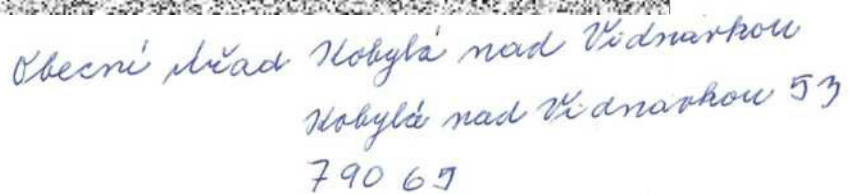 Obecní úřad Kobylá nad Vidnavkou
Kobylá nad Vidnavkou 53
790 65